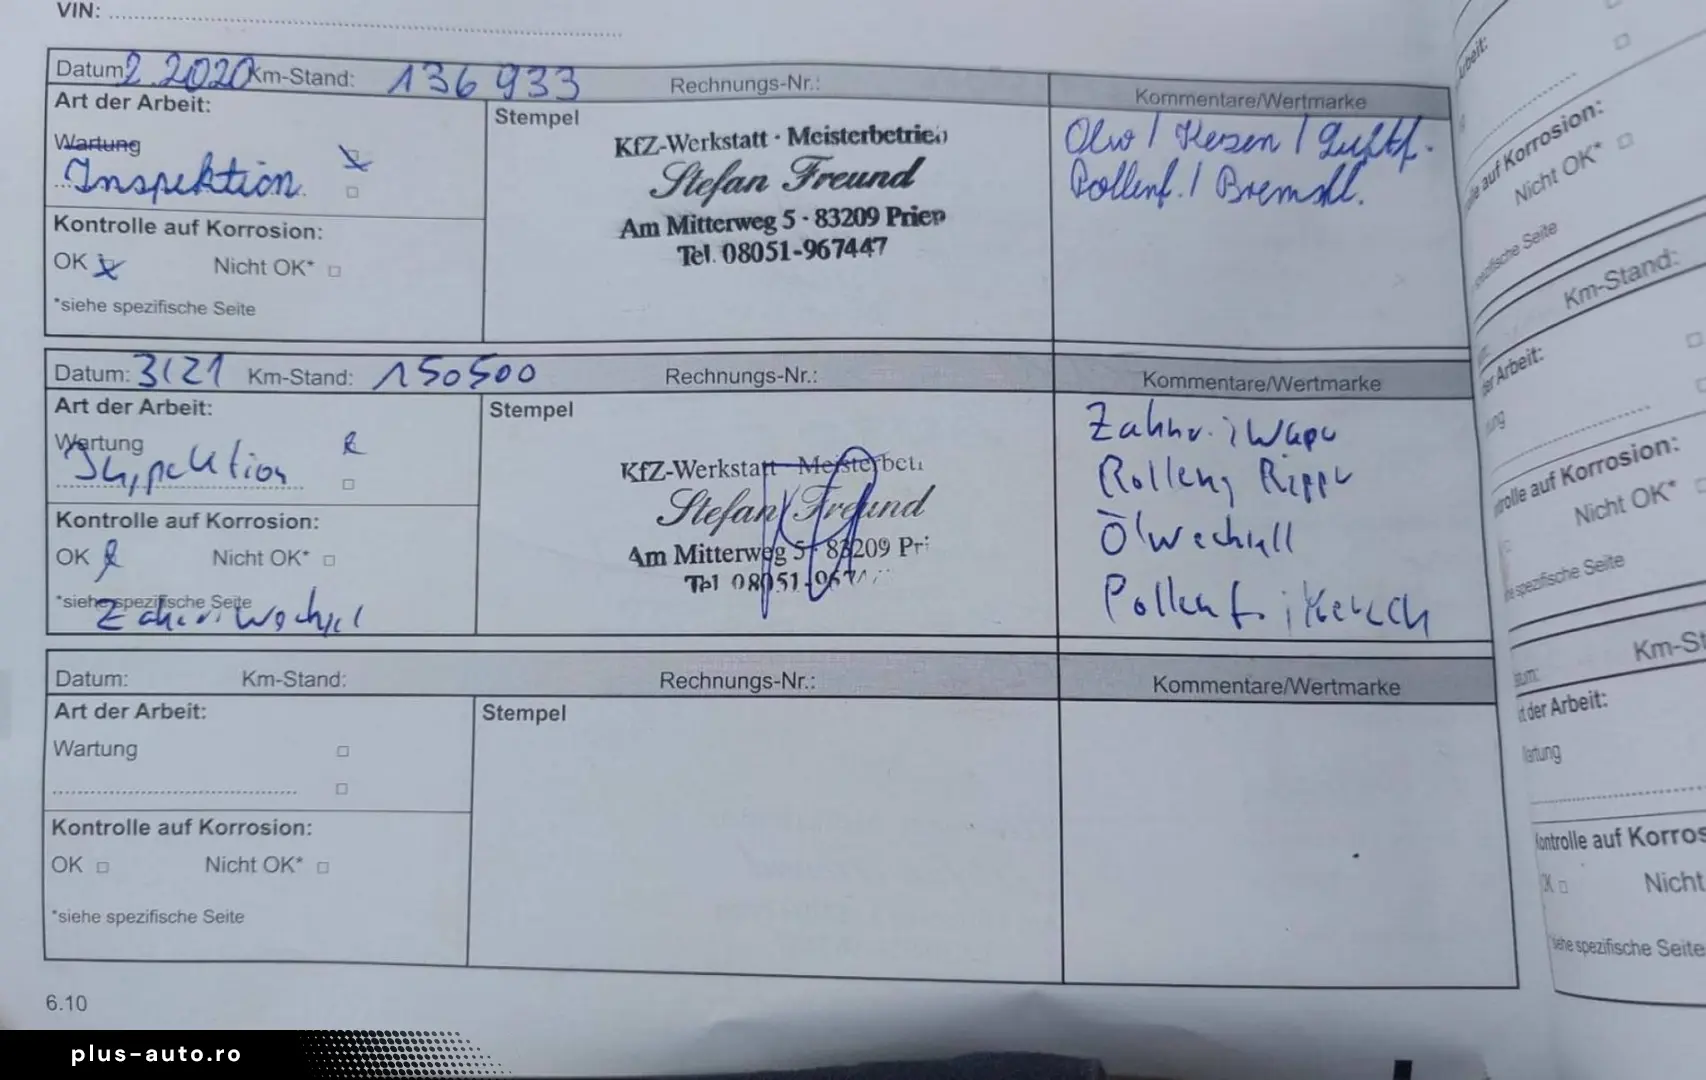 VIN:
Datum: 2.2020 Km-Stand: 136 933 Rechnungs-Nr.: Kommentare/Wertmarke
Art der Arbeit:
Wartung
Inspektion
Kontrolle auf Korrosion:
OK Nicht OK*
*siehe spezifische Seite
Stempel
KfZ-Werkstatt · Meisterbetrieb
Stefan Freund
Am Mitterweg 5 · 83209 Prien
Tel. 08051-967447
Ölw / Kerzen / Luftf.
Pollenf. / Bremsfl.
Datum: 3/21 Km-Stand: 150500 Rechnungs-Nr.: Kommentare/Wertmarke
Art der Arbeit:
Wartung
Inspektion
Kontrolle auf Korrosion:
OK Nicht OK*
*siehe spezifische Seite
Zahnr. Wechsel
Stempel
KfZ-Werkstatt Meisterbet
Stefan Freund
Am Mitterweg 5 · 83209 Pri
Tel 08051-967
Zahnr. ; Wapu
Rollen, Rippe
Ölwechsel
Pollenf.
Datum: Km-Stand: Rechnungs-Nr.: Kommentare/Wertmarke
Art der Arbeit:
Wartung
Kontrolle auf Korrosion:
OK Nicht OK*
*siehe spezifische Seite
Stempel
6.10
Arbeit:
auf Korrosion:
Nicht OK*
spezifische Seite
Km-Stand:
der Arbeit:
ung
trolle auf Korrosion:
Nicht OK*
spezifische Seite
Km-St
tum:
t der Arbeit:
Wartung
Kontrolle auf Korros
OK Nicht
siehe spezifische Seite
plus-auto.ro